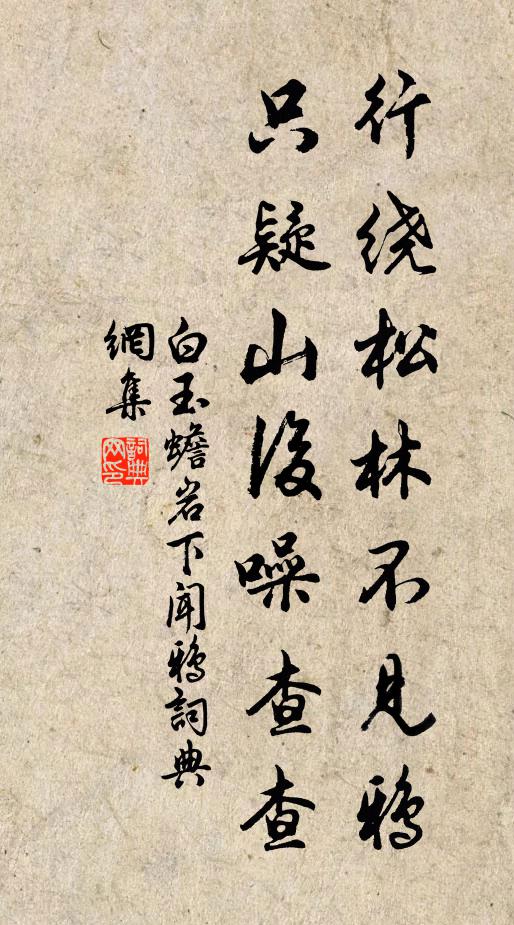 行绕松林不见鸦
只疑山後噪查查
白玉蟾岩下闻鸦詞典
網集
詞典
网印